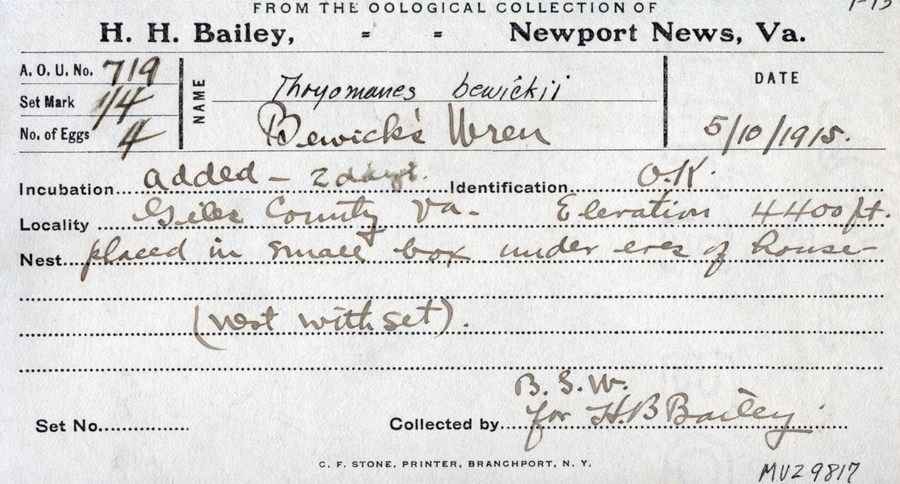 FROM THE OOLOGICAL COLLECTION OF
H. H. Bailey, = = Newport News, Va.
A. O. U. No. 719
Set Mark 1/4
No. of Eggs 4
NAME
Thryomanes bewickii
Bewick's Wren
DATE
5/10/1915.
Incubation added - 2 days. Identification O.K.
Locality Giles County Va. Elevation 4400 ft.
Nest placed in small box under eves of house
(nest with set).
B. S. W.
Set No. Collected by for H.B Bailey.
C. F. STONE, PRINTER, BRANCHPORT, N. Y.
MVZ 9817